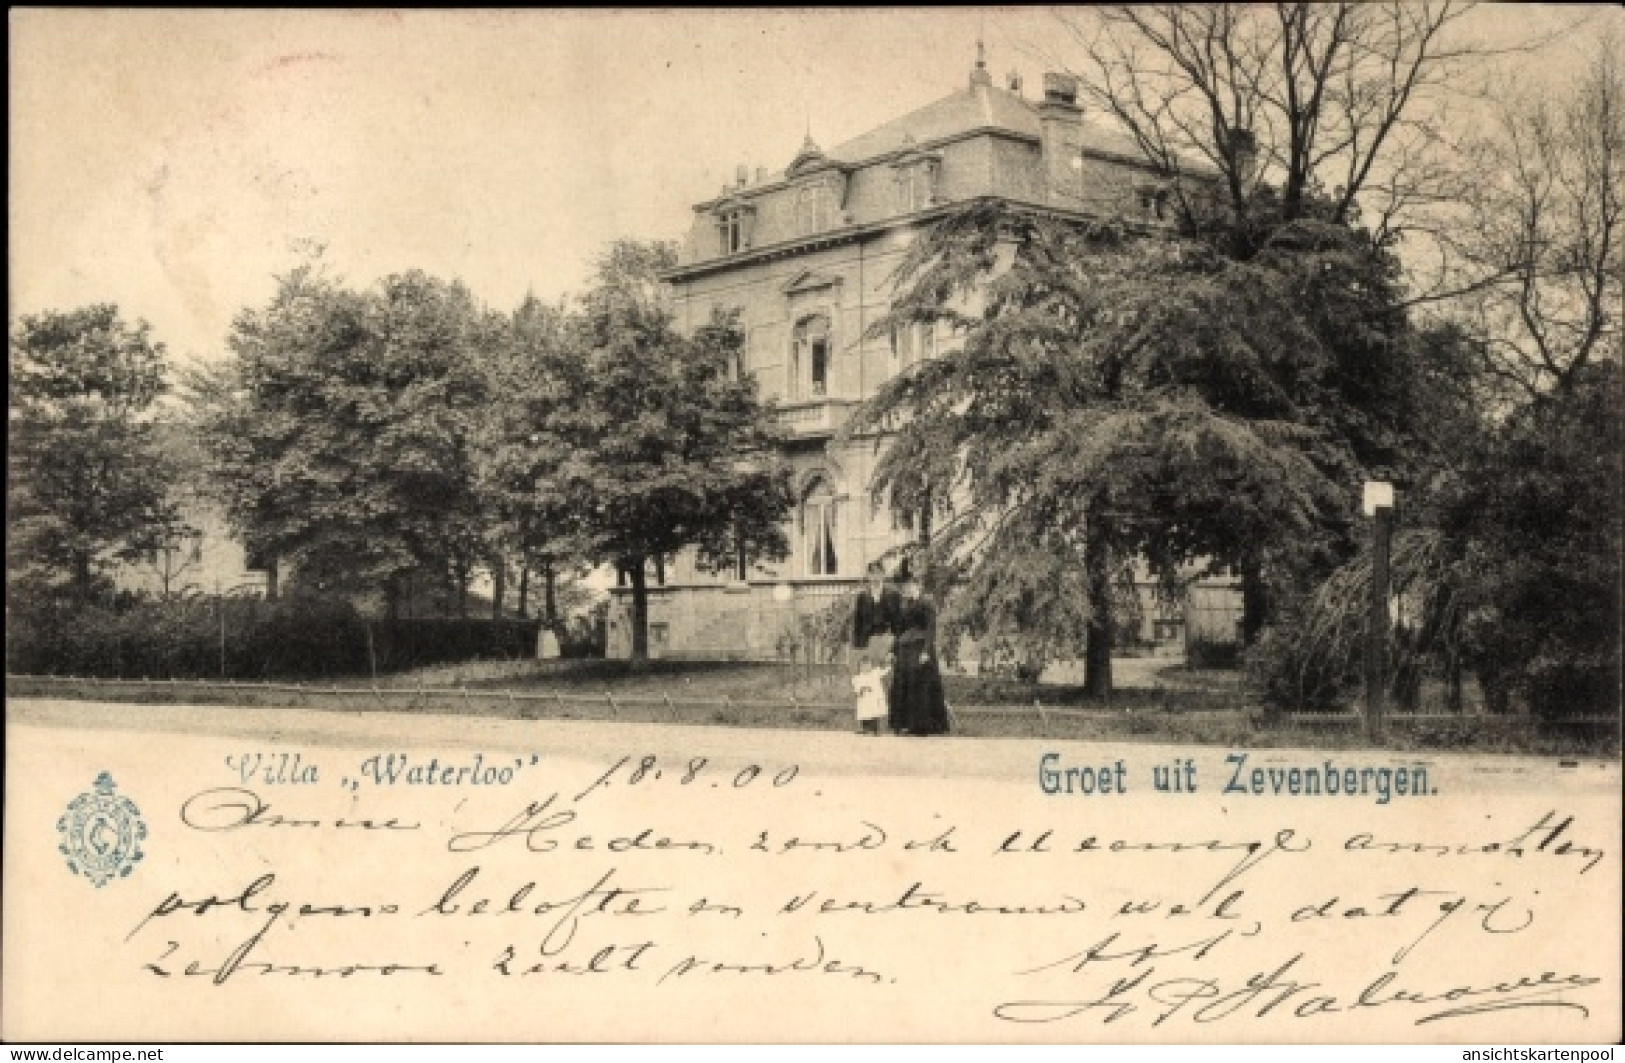 Villa „Waterloo” 18.8.00 Groet uit Zevenbergen.
Amice! Heden zend ik U eenige ansichten
volgens belofte en vertrouw wel, dat gij
ze mooi zult vinden.
www.delcampe.net
ansichtskartenpool